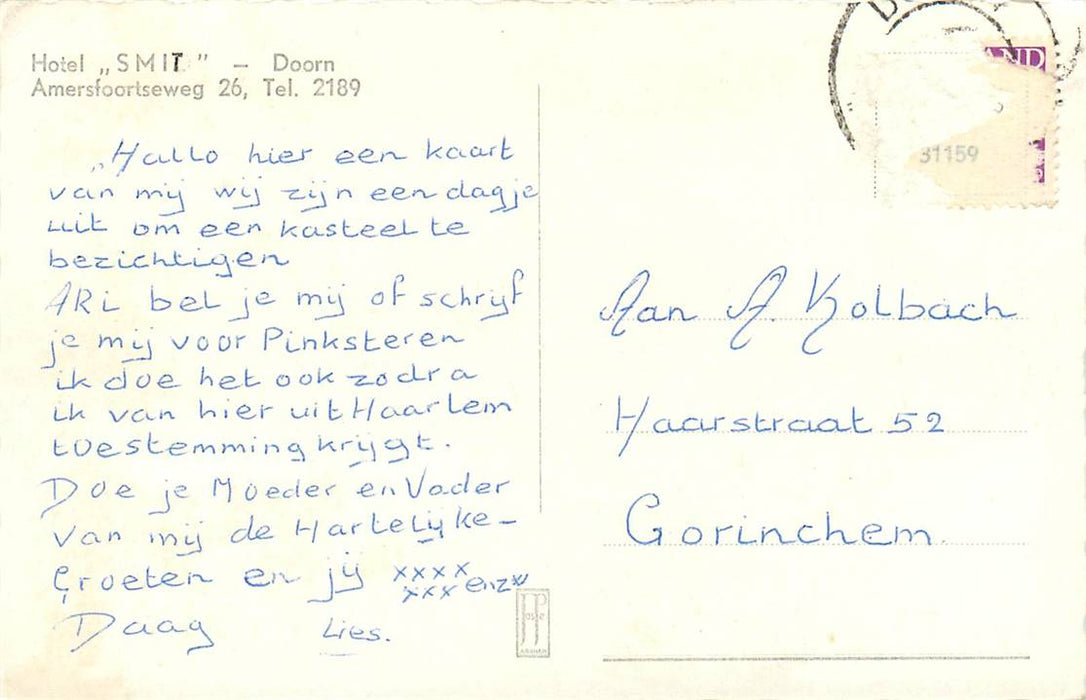 Hotel „SMIT” — Doorn
Amersfoortseweg 26, Tel. 2189
„Hallo hier een kaart
van mij wij zijn een dagje
uit om een kasteel te
bezichtigen
ARi bel je mij of schrijf
je mij voor Pinksteren
ik doe het ook zodra
ik van hier uit Haarlem
toestemming krijgt.
Doe je Moeder en Vader
van mij de Hartelijke-
Groeten en jij xxxx
xxx enz
Daag Lies.
AND
31159
Aan A. Kolbach
Haarstraat 52
Gorinchem